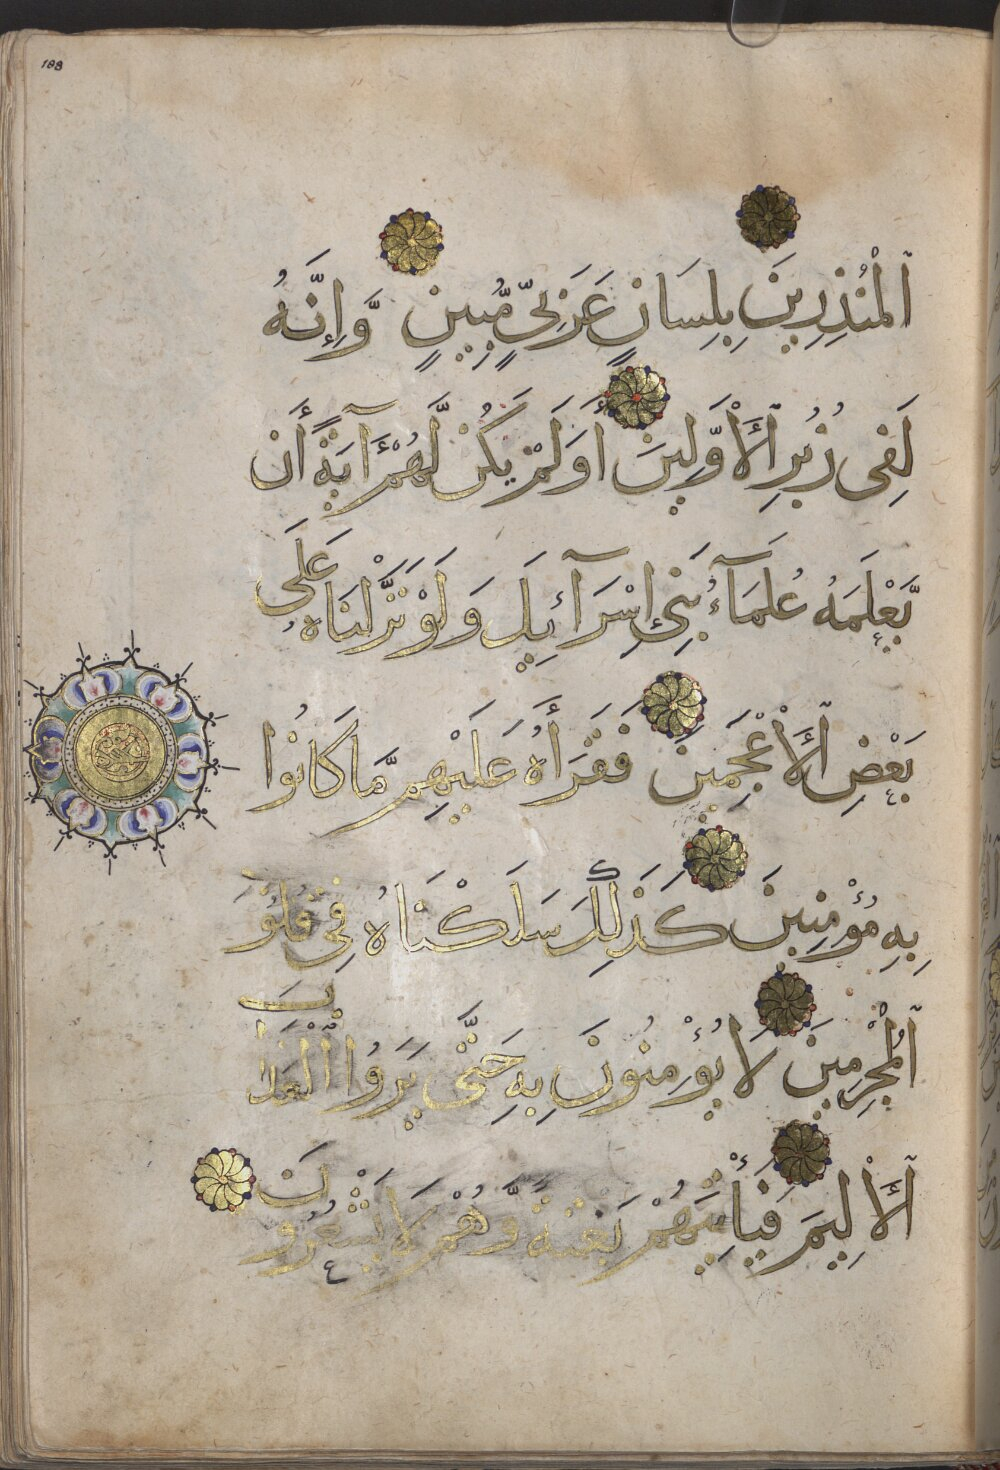 188
ٱلْمُنذِرِينَ بِلِسَانٍ عَرَبِيٍّ مُّبِينٍ وَّإِنَّهُ
لَفِى زُبُرِ ٱلْأَوَّلِينَ أَوَلَمْ يَكُن لَّهُمْ آيَةً أَن
يَّعْلَمَهُ عُلَمَآءُ بَنِى إِسْرَآئِيلَ وَلَوْ نَزَّلْنَاهُ عَلَى
بَعْضِ ٱلْأَعْجَمِينَ فَقَرَأَهُ عَلَيْهِم مَّا كَانُوا
بِهِ مُؤْمِنِينَ كَذَلِكَ سَلَكْنَاهُ فِى قُلُوبِ
ٱلْمُجْرِمِينَ لَا يُؤْمِنُونَ بِهِ حَتَّى يَرَوُا ٱلْعَذَابَ
ٱلْأَلِيمَ فَيَأْتِيَهُمْ بَغْتَةً وَّهُمْ لَا يَشْعُرُونَ